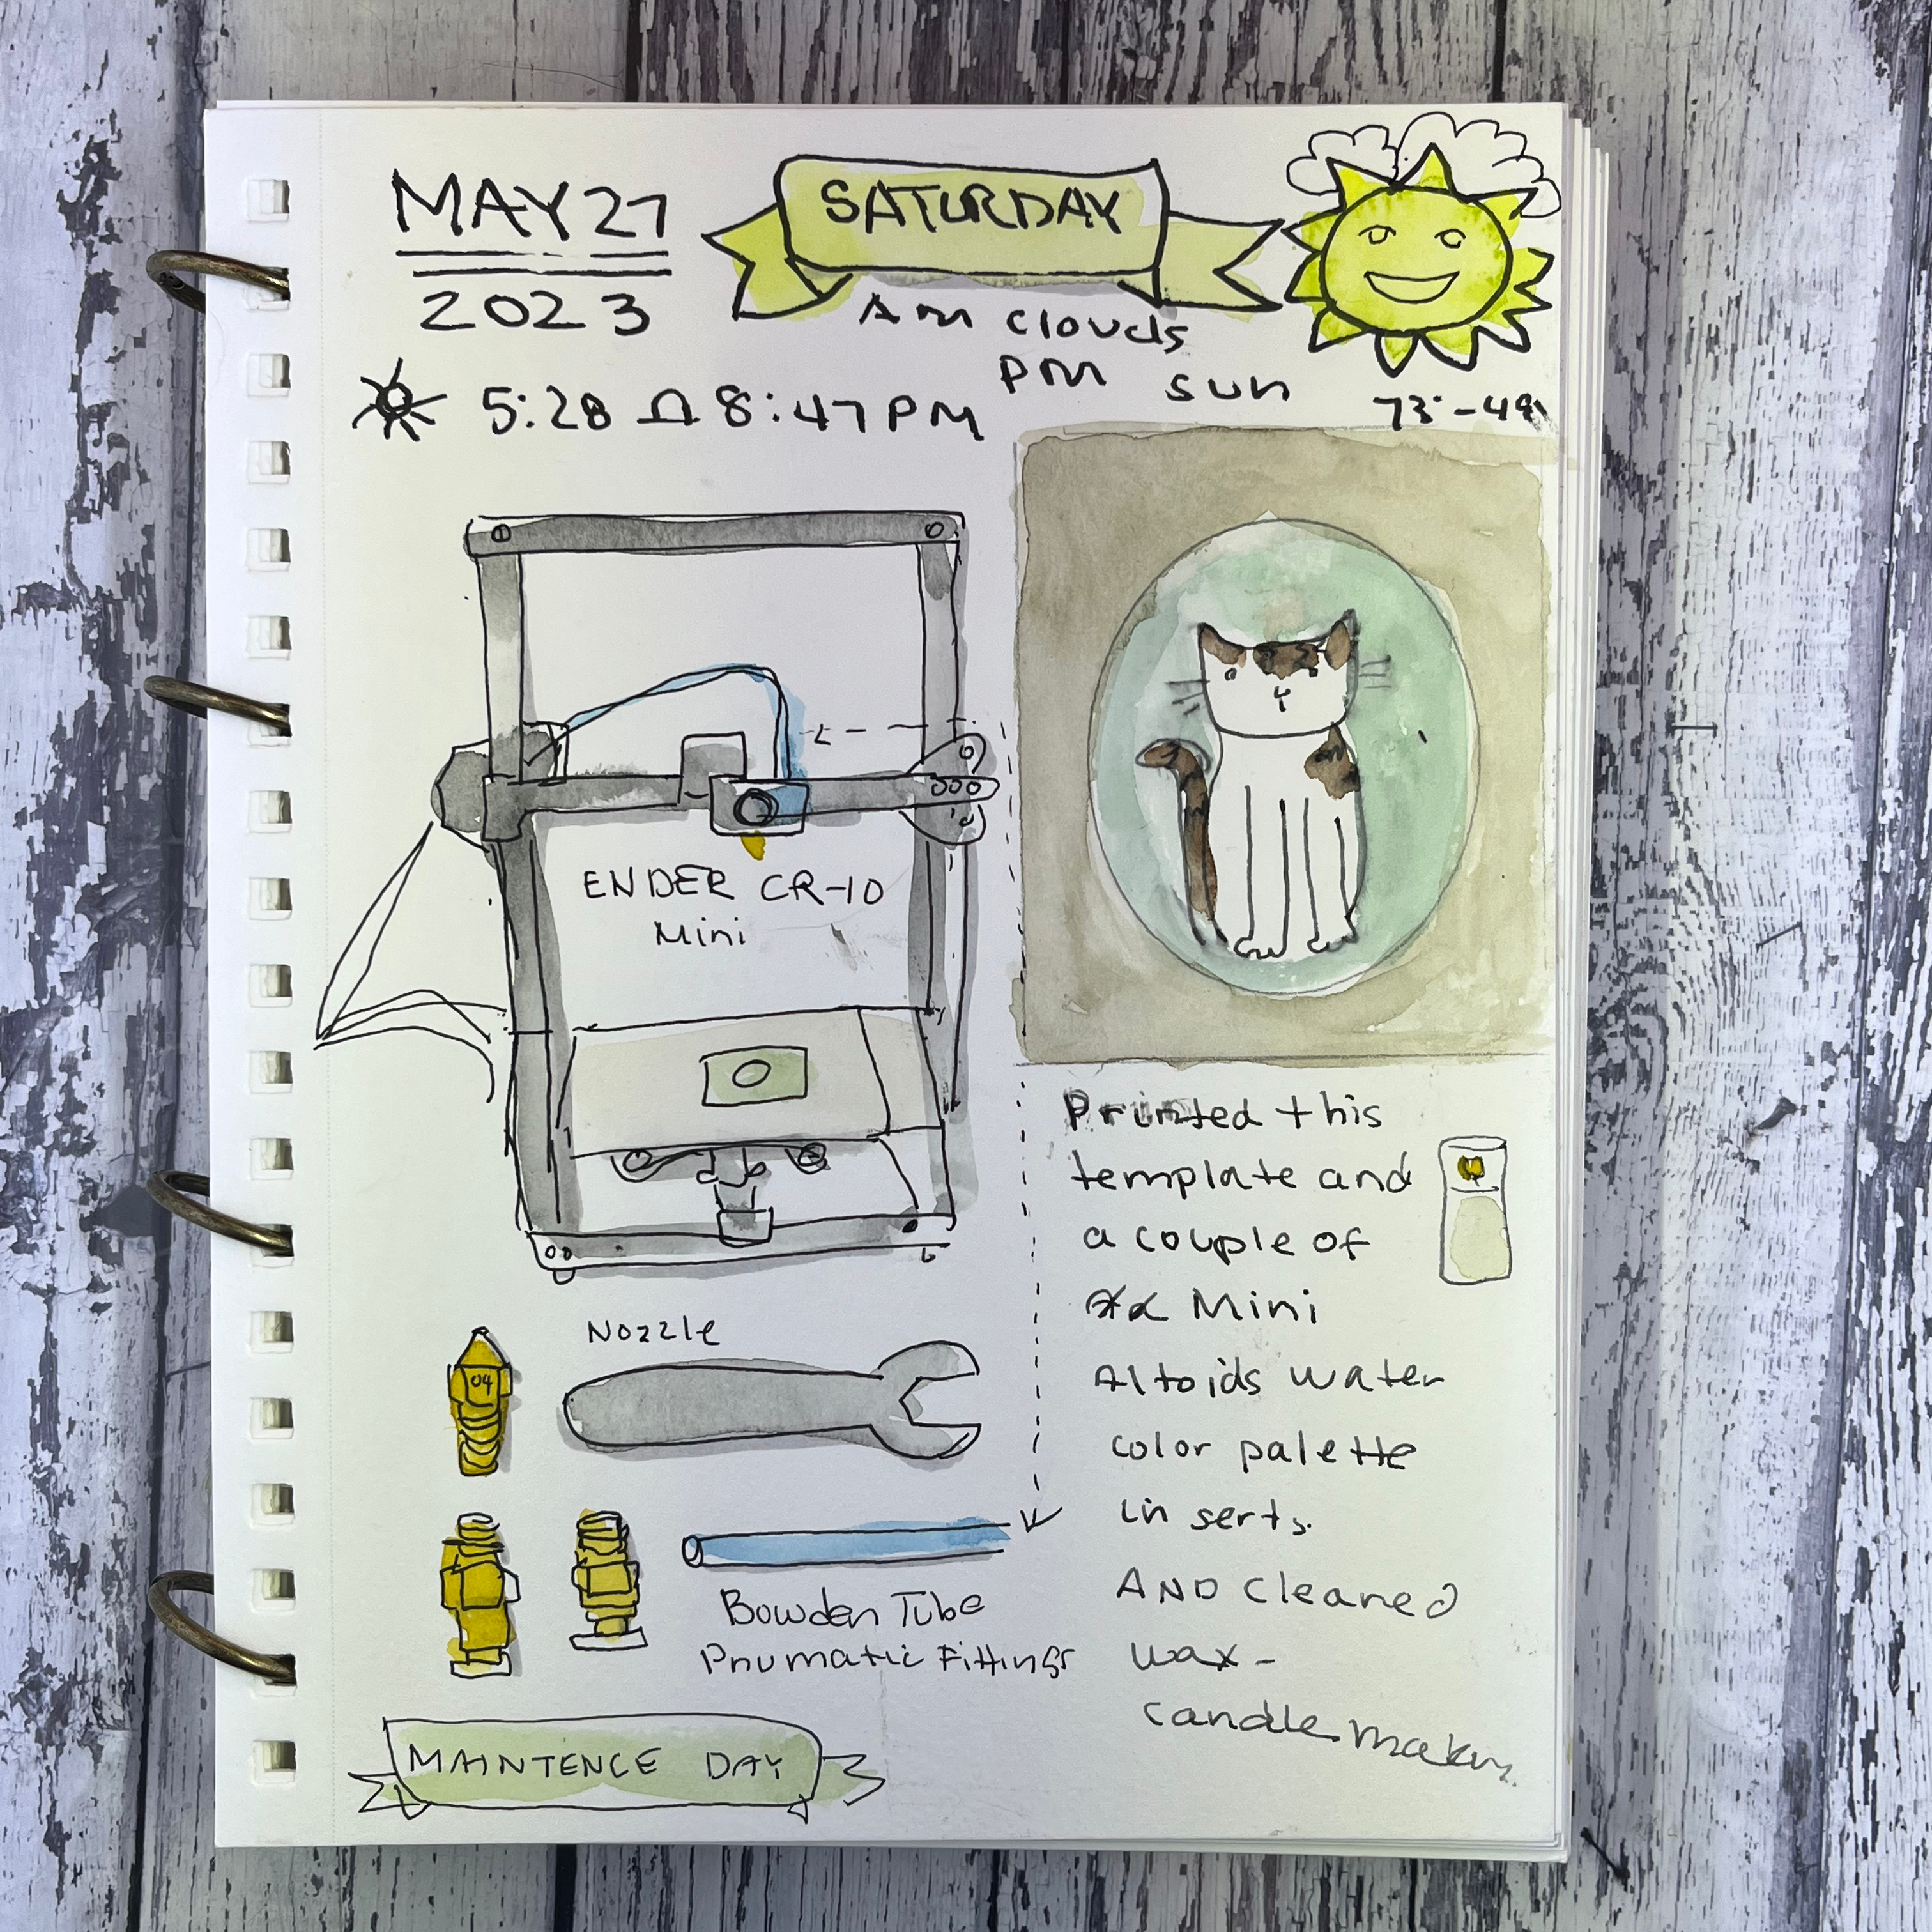 MAY 27
2023
SATURDAY
Am clouds
pm sun
5:28 8:47 PM
73°-49
ENDER CR-10
Mini
Nozzle
04
Bowden Tube
Pnumatic Fittings
MAINTENCE DAY
Printed this
template and
a couple of
Mini
Altoids water
color palette
in serts.
AND Cleaned
wax -
candle making.